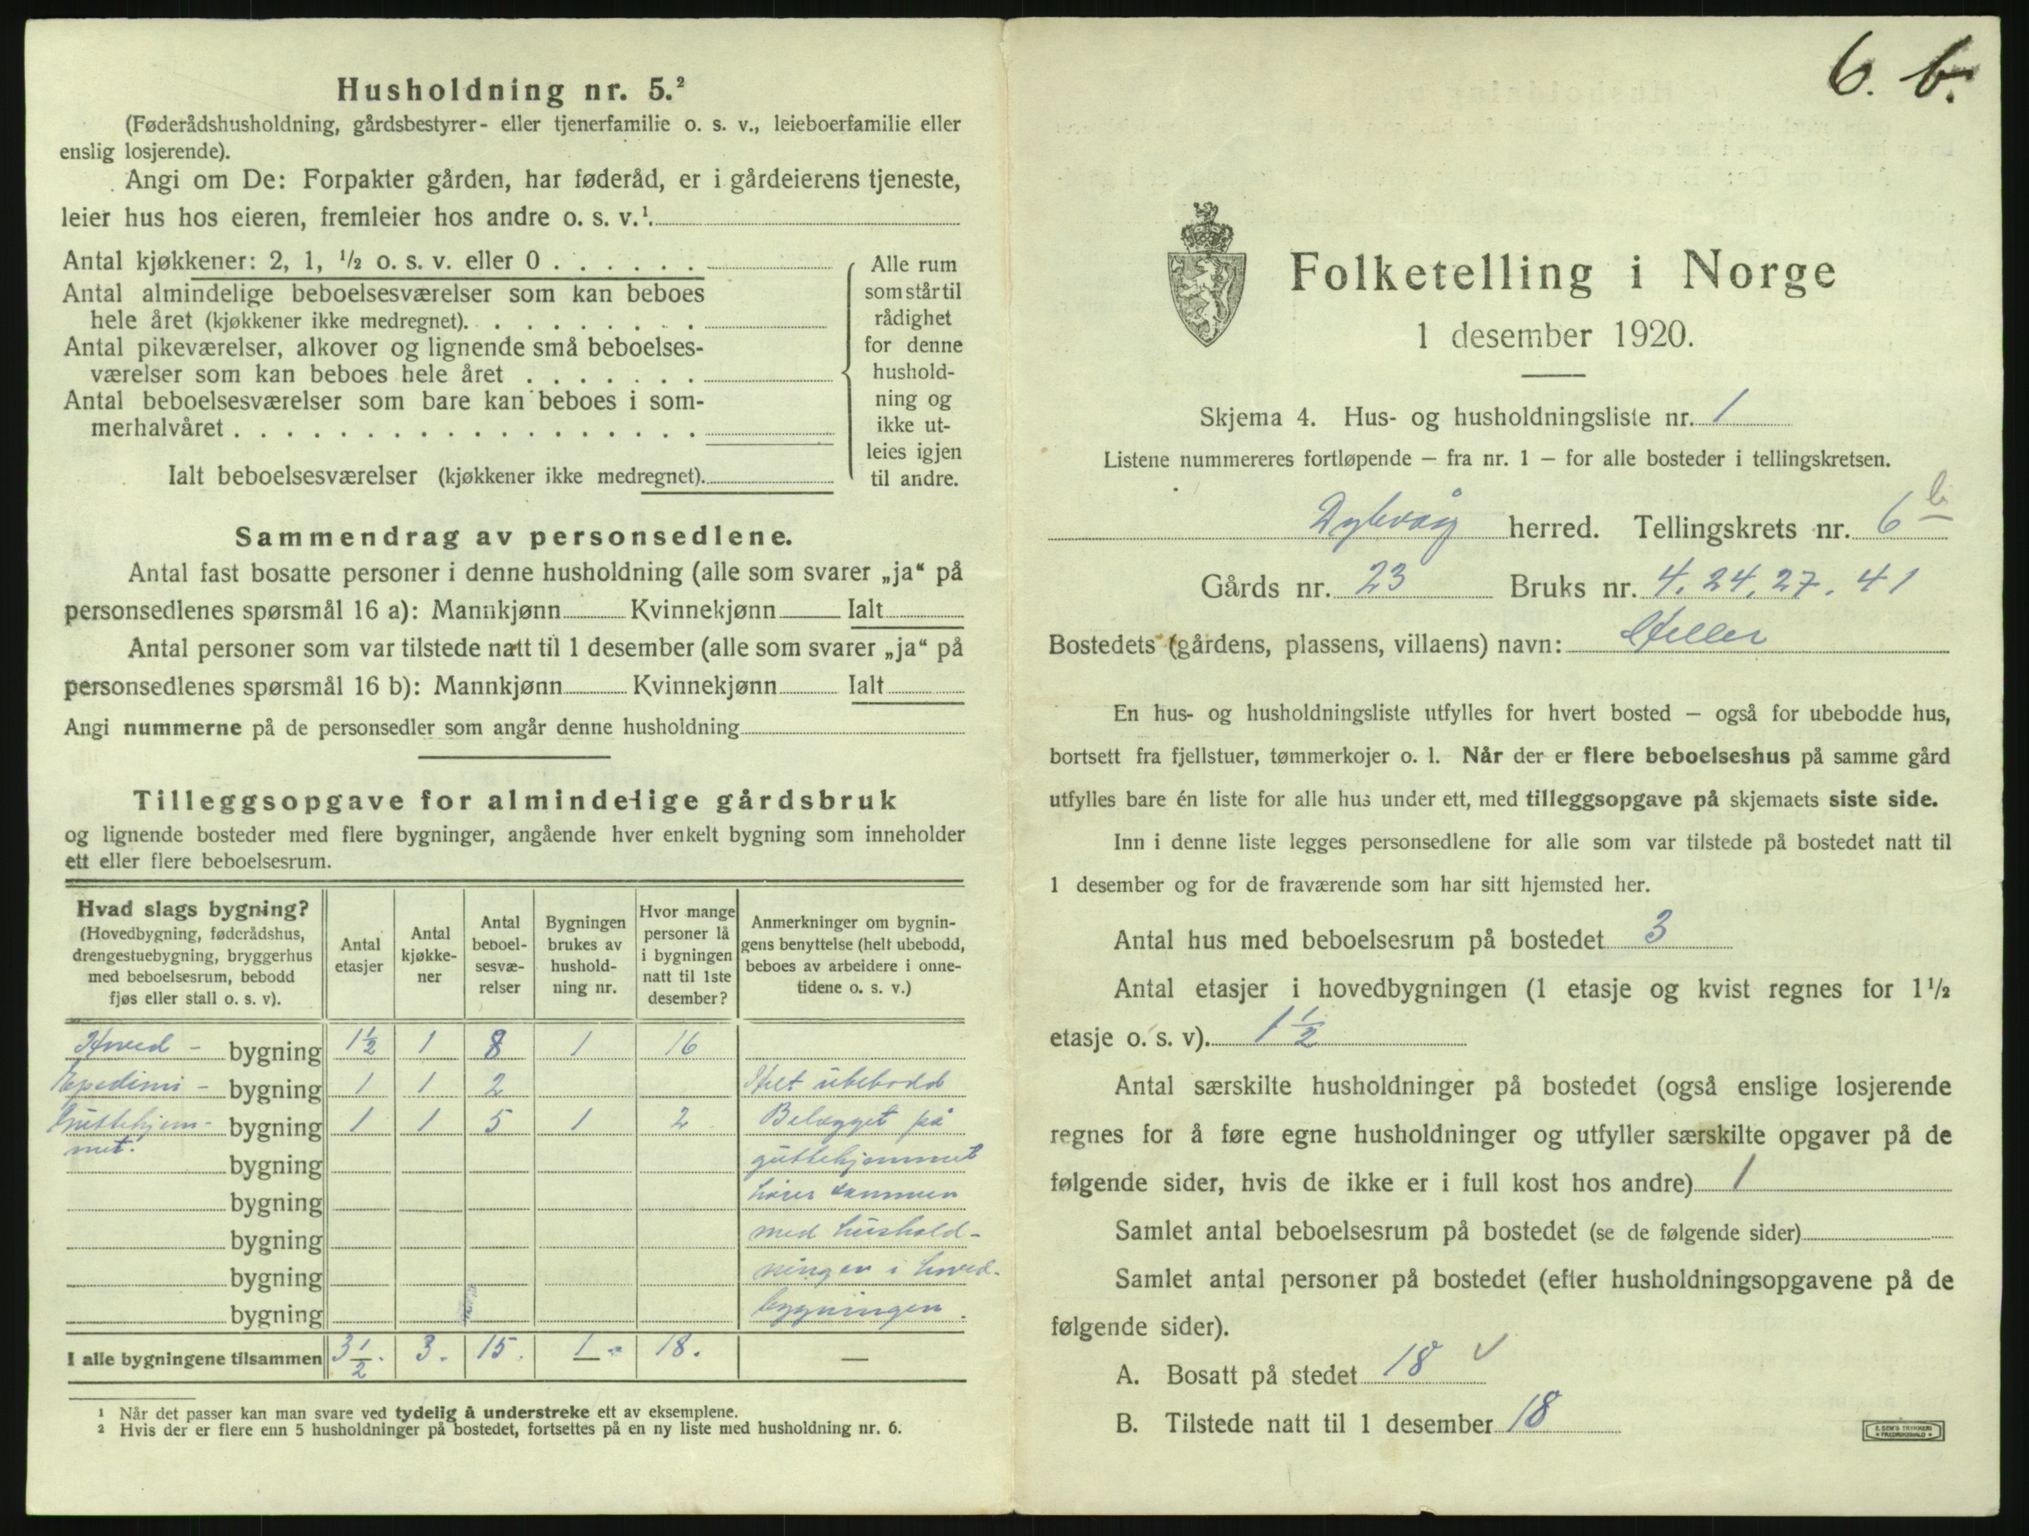 Husholdning nr. 5.²
(Føderådshusholdning, gårdsbestyrer- eller tjenerfamilie o. s. v., leieboerfamilie eller
enslig losjerende).
Angi om De: Forpakter gården, har føderåd, er i gårdeierens tjeneste,
leier hus hos eieren, fremleier hos andre o. s. v.¹
Antal kjøkkener: 2, 1, ½ o. s. v. eller 0
Antal almindelige beboelsesværelser som kan beboes
hele året (kjøkkener ikke medregnet).
Antal pikeværelser, alkover og lignende små beboelses-
værelser som kan beboes hele året
Antal beboelsesværelser som bare kan beboes i som-
merhalvåret
Ialt beboelsesværelser (kjøkkener ikke medregnet).
Alle rum
som står til
rådighet
for denne
hushold-
ning og
ikke ut-
leies igjen
til andre.
Sammendrag av personsedlene.
Antal fast bosatte personer i denne husholdning (alle som svarer „ja“ på
personsedlenes spørsmål 16 a): Mannkjønn Kvinnekjønn Ialt
Antal personer som var tilstede natt til 1 desember (alle som svarer „ja“ på
personsedlenes spørsmål 16 b): Mannkjønn Kvinnekjønn Ialt
Angi nummerne på de personsedler som angår denne husholdning
Tilleggsopgave for almindelige gårdsbruk
og lignende bosteder med flere bygninger, angående hver enkelt bygning som inneholder
ett eller flere beboelsesrum.
Hvad slags bygning?
(Hovedbygning, føderådshus,
drengestuebygning, bryggerhus
med beboelsesrum, bebodd
fjøs eller stall o. s. v).
Antal
etasjer
Antal
kjøkke-
ner
Antal
beboel-
sesvæ-
relser
Bygningen
brukes av
hushold-
ning nr.
Hvor mange
personer lå
i bygningen
natt til 1ste
desember?
Anmerkninger om bygnin-
gens benyttelse (helt ubebodd,
beboes av arbeidere i onne-
tidene o. s. v.)
Hoved - bygning 1½ 1 8 1 16
Epedimi - bygning 1 1 2 Helt ubebodd
Guttehjem- bygning 1 1 5 1 2 Belægget på
met. bygning guttehjemmet
bygning hører sammen
bygning med hushold-
bygning ningen i hoved-
bygning bygningen.
I alle bygningene tilsammen 3½. 3. 15. 1 18. —
¹ Når det passer kan man svare ved tydelig å understreke ett av eksemplene.
² Hvis der er flere enn 5 husholdninger på bostedet, fortsettes på en ny liste med husholdning nr. 6.
6. b.
Folketelling i Norge
1 desember 1920.
Skjema 4. Hus- og husholdningsliste nr. 1
Listene nummereres fortløpende – fra nr. 1 – for alle bosteder i tellingskretsen.
Dybvåg herred. Tellingskrets nr. 6 b
Gårds nr. 23 Bruks nr. 4. 24. 27. 41
Bostedets (gårdens, plassens, villaens) navn:
En hus- og husholdningsliste utfylles for hvert bosted – også for ubebodde hus,
bortsett fra fjellstuer, tømmerkojer o. l. Når der er flere beboelseshus på samme gård
utfylles bare én liste for alle hus under ett, med tilleggsopgave på skjemaets siste side.
Inn i denne liste legges personsedlene for alle som var tilstede på bostedet natt til
1 desember og for de fraværende som har sitt hjemsted her.
Antal hus med beboelsesrum på bostedet 3
Antal etasjer i hovedbygningen (1 etasje og kvist regnes for 1½
etasje o. s. v). 1½
Antal særskilte husholdninger på bostedet (også enslige losjerende
regnes for å føre egne husholdninger og utfyller særskilte opgaver på de
følgende sider, hvis de ikke er i full kost hos andre) 1
Samlet antal beboelsesrum på bostedet (se de følgende sider)
Samlet antal personer på bostedet (efter husholdningsopgavene på de
følgende sider).
A. Bosatt på stedet 18 ✓
B. Tilstede natt til 1 desember 18